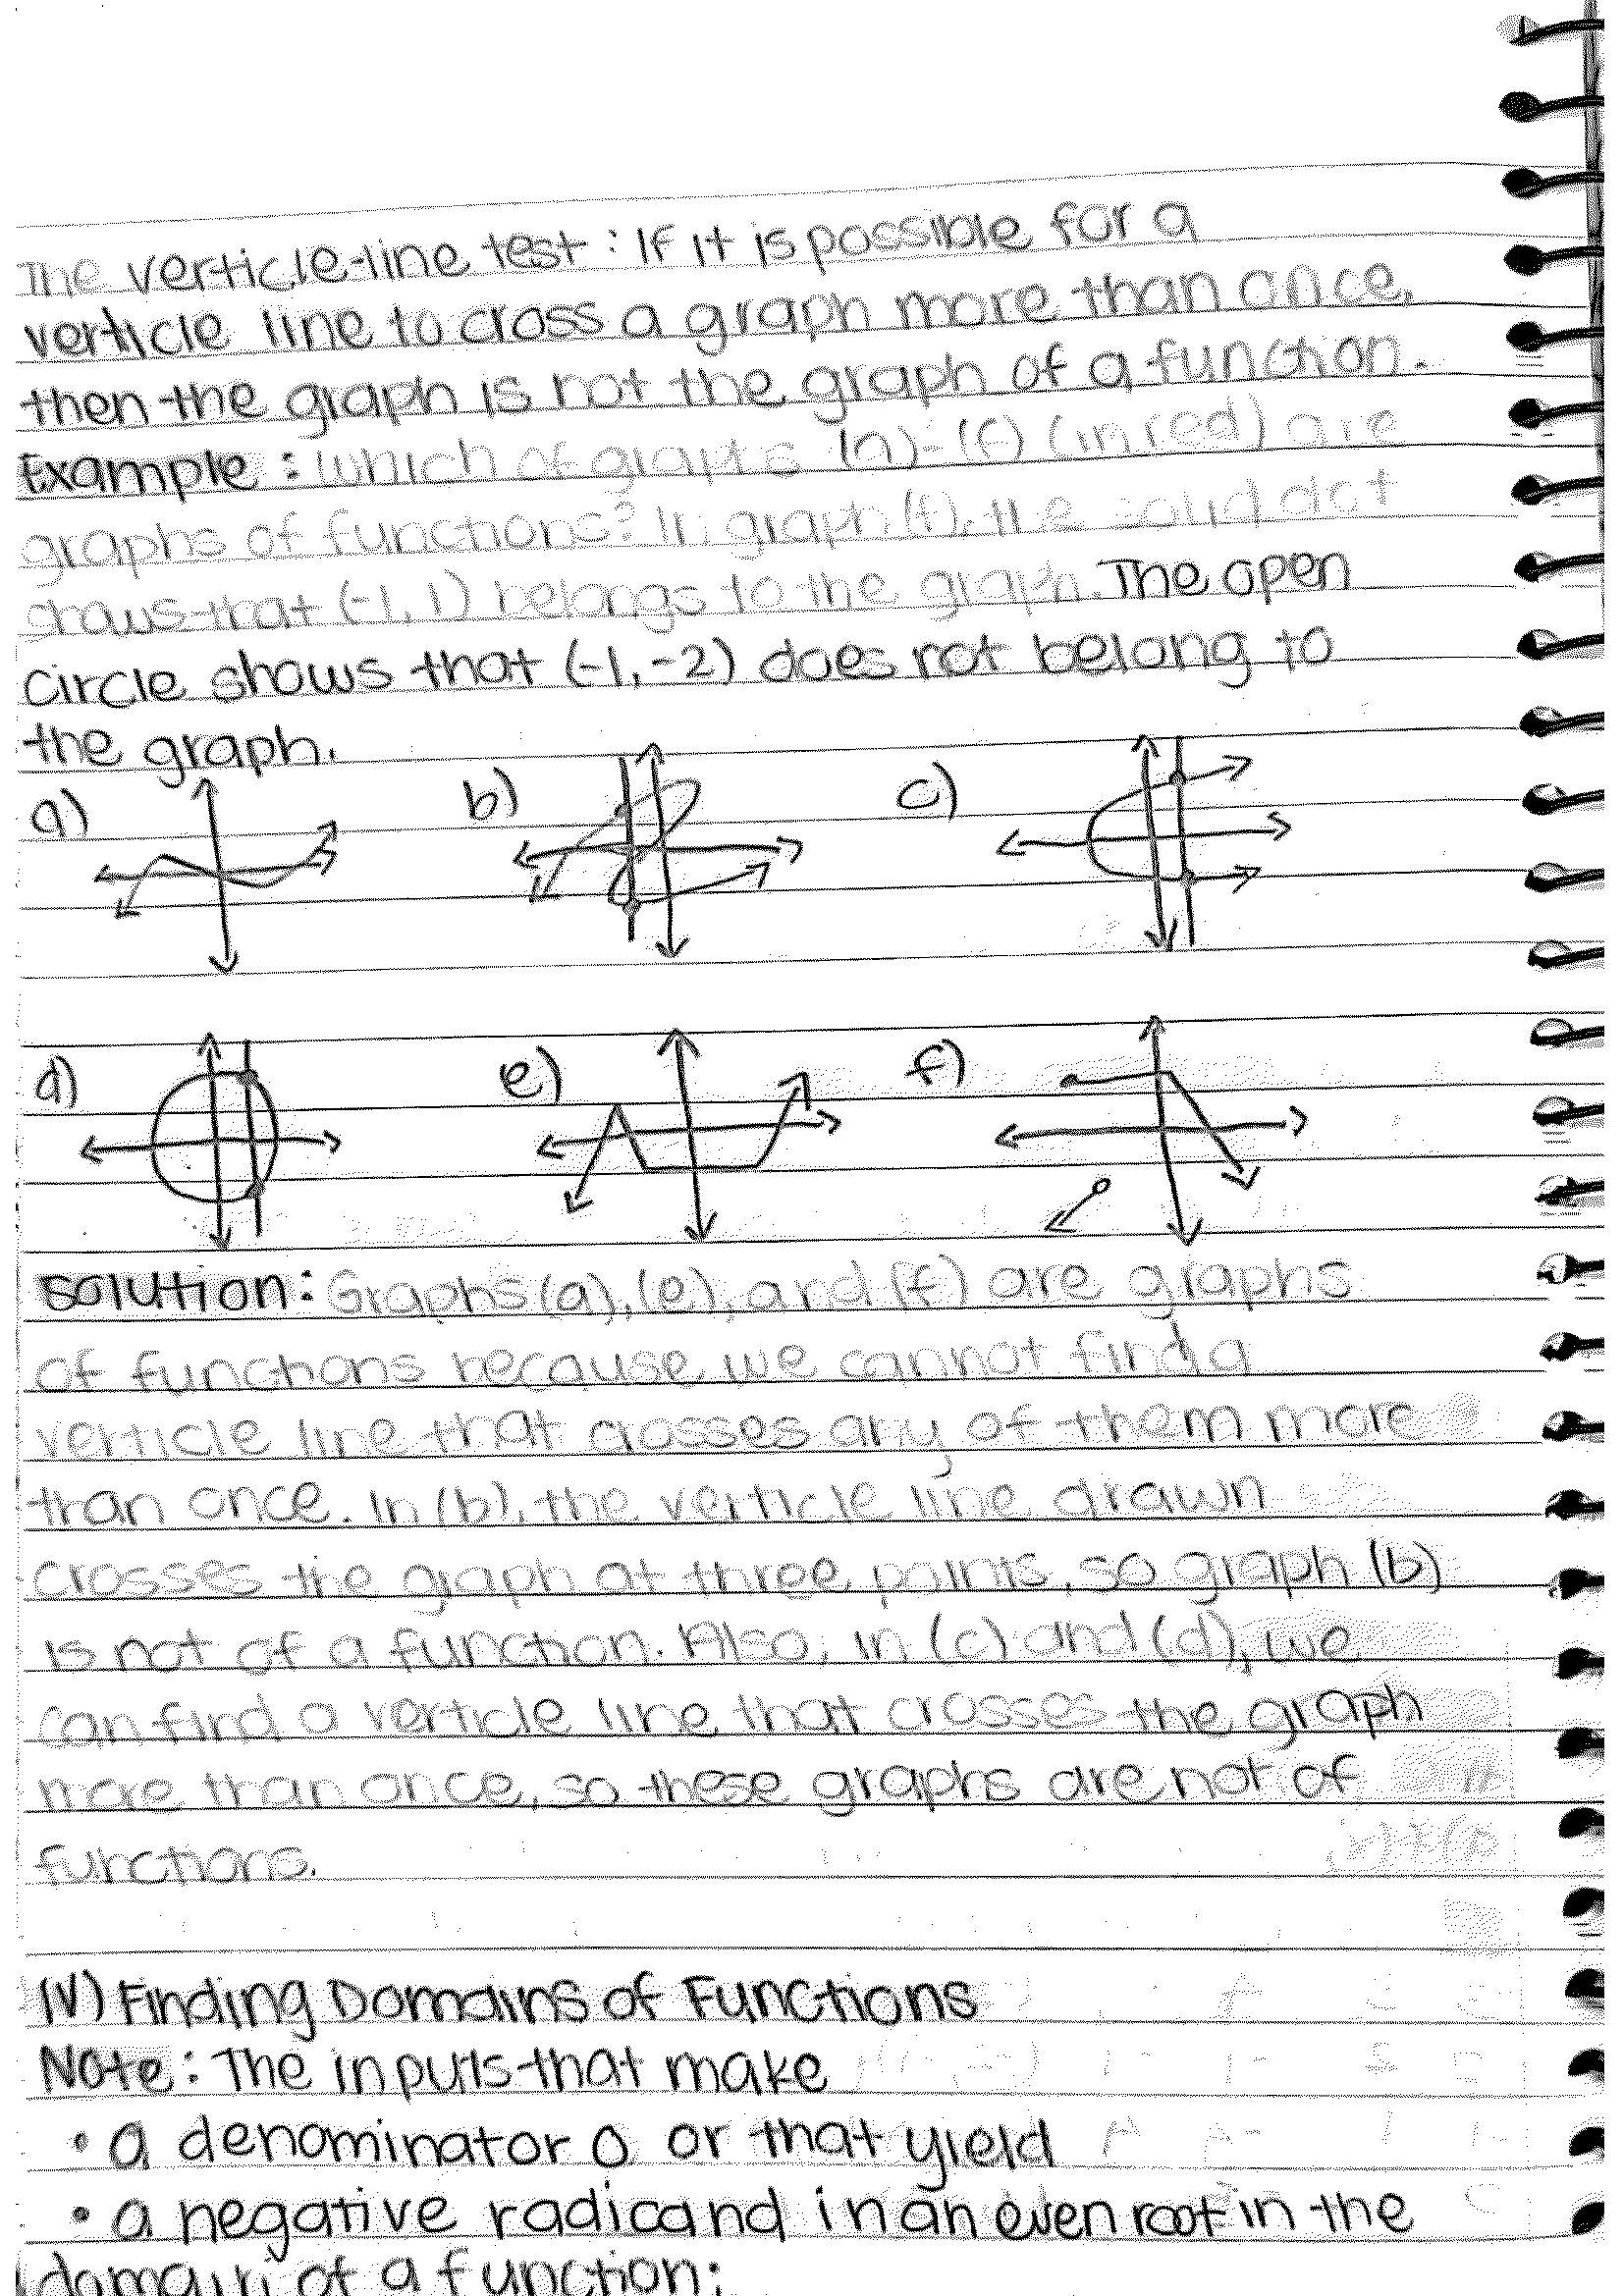 The verticle-line test: If it is possible for a
verticle line to cross a graph more than once,
then the graph is not the graph of a function.
Example: which of graphs (a)-(f) (in red) are
graphs of functions? In graph (f), the solid dot
shows that (-1, 1) belongs to the graph. The open
circle shows that (-1, -2) does not belong to
the graph.
a) b) c)
d) e) f)
Solution: Graphs (a), (e), and (f) are graphs
of functions because we cannot find a
verticle line that crosses any of them more
than once. In (b), the verticle line drawn
crosses the graph at three points, so graph (b)
is not of a function. Also, in (c) and (d), we
can find a verticle line that crosses the graph
more than once, so these graphs are not of
functions.
(IV) Finding Domains of Functions
Note: The inputs that make
• a denominator 0 or that yield
• a negative radicand in an even root in the
domain of a function: